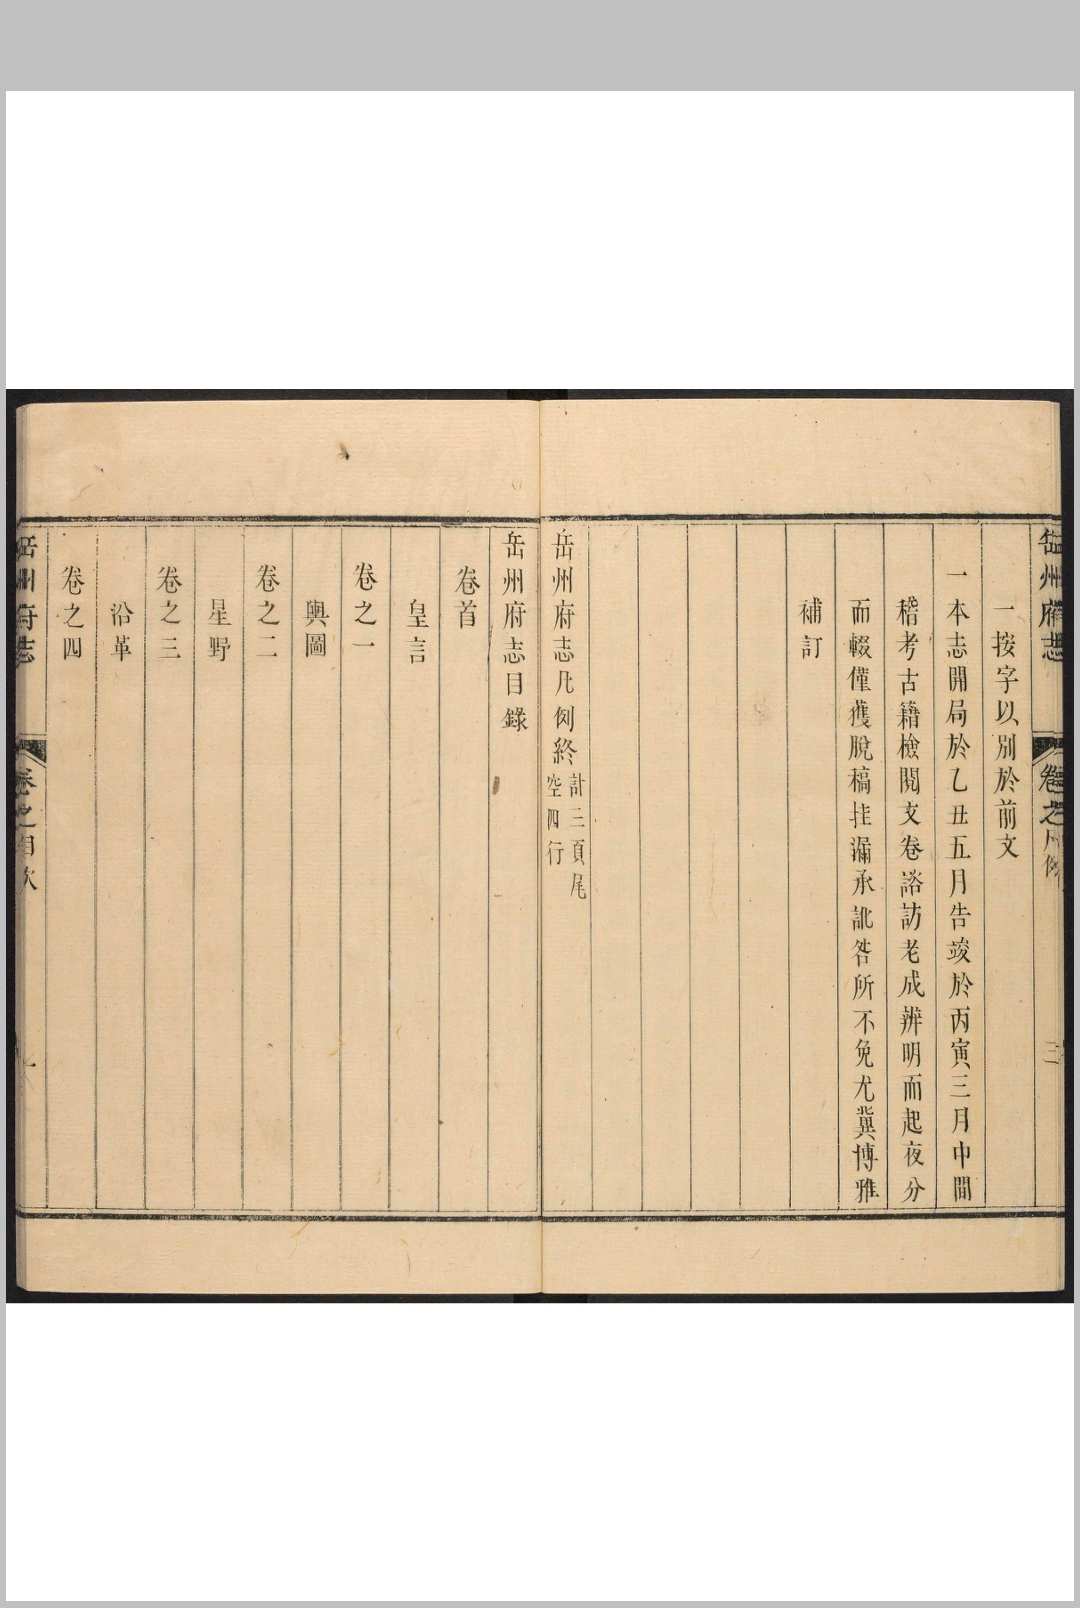 岳州府志 卷之凡例 三
一按字以別於前文
一本志開局於乙丑五月告竣於丙寅三月中間
稽考古籍檢閱文卷諮訪老成辨明而起夜分
而輟僅獲脫稿挂漏承訛咎所不免尤冀博雅
補訂
岳州府志凡例終
計三頁尾
空四行
岳州府志目錄
卷首
皇言
卷之一
輿圖
卷之二
星野
卷之三
沿革
卷之四
岳州府志 卷之目次 一